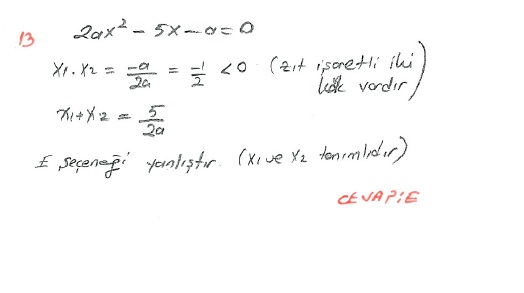 13 2ax² - 5x - a = 0
x₁ . x₂ = -a/2a = -1/2 < 0 (zıt işaretli iki kök vardır)
x₁ + x₂ = 5/2a
E seçeneği yanlıştır. (x₁ ve x₂ tanımlıdır)
CEVAP: E